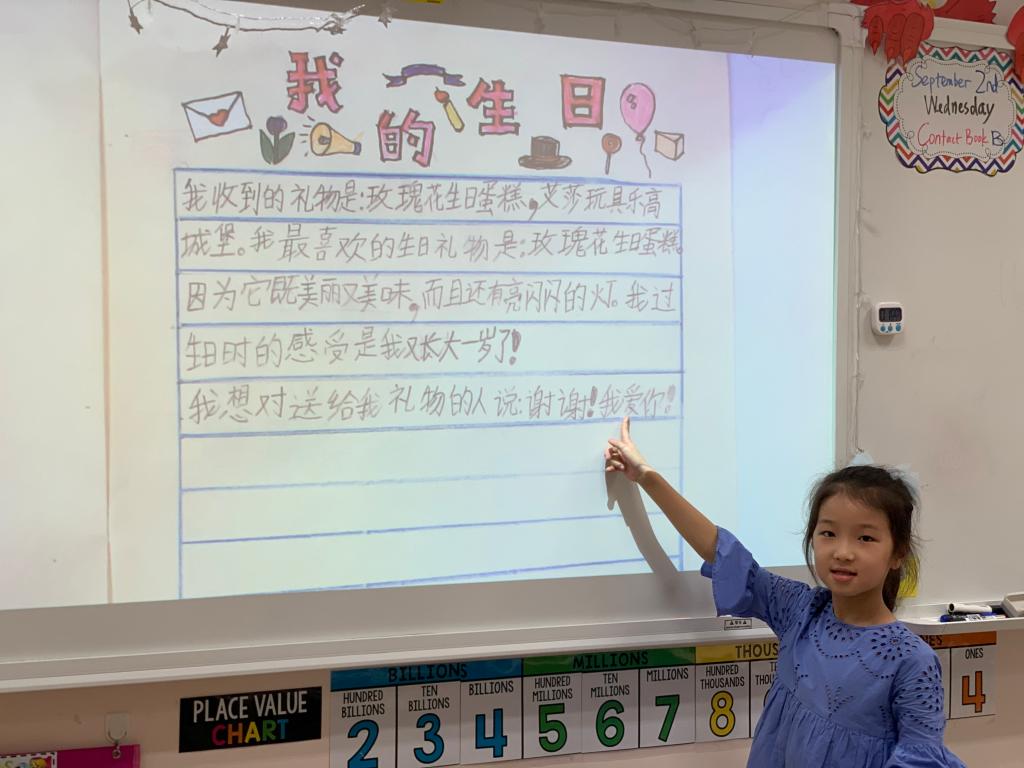 我的生日
我收到的礼物是:玫瑰花生日蛋糕,艾莎玩具乐高
城堡。我最喜欢的生日礼物是:玫瑰花生日蛋糕。
因为它既美丽又美味,而且还有亮闪闪的灯。我过
生日时的感受是我又长大一岁了!
我想对送给我礼物的人说:谢谢!我爱你!
September 2nd
Wednesday
Contact Book
PLACE VALUE
CHART
BILLIONS
MILLIONS
THOU
ONES
HUNDRED BILLIONS
TEN BILLIONS
BILLIONS
HUNDRED MILLIONS
TEN MILLIONS
MILLIONS
HUNDRED THOUSANDS
2
3
4
5
6
7
8
4